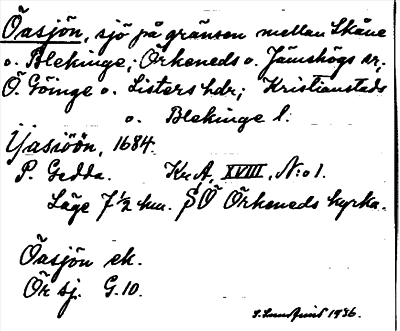 Öasjön, sjö på gränsen mellan Skåne
o. Blekinge; Örkeneds o. Jämshögs sr,
Ö. Göinge o. Listers hdr; Kristianstads
o. Blekinge l.
Yasiöön, 1684.
P. Gedda. Kr.A, XVIII, N:o 1.
Läge 7 1/2 km. SÖ Örkeneds kyrka.
Öasjön ek.
Ör sj. G.10.
1936.